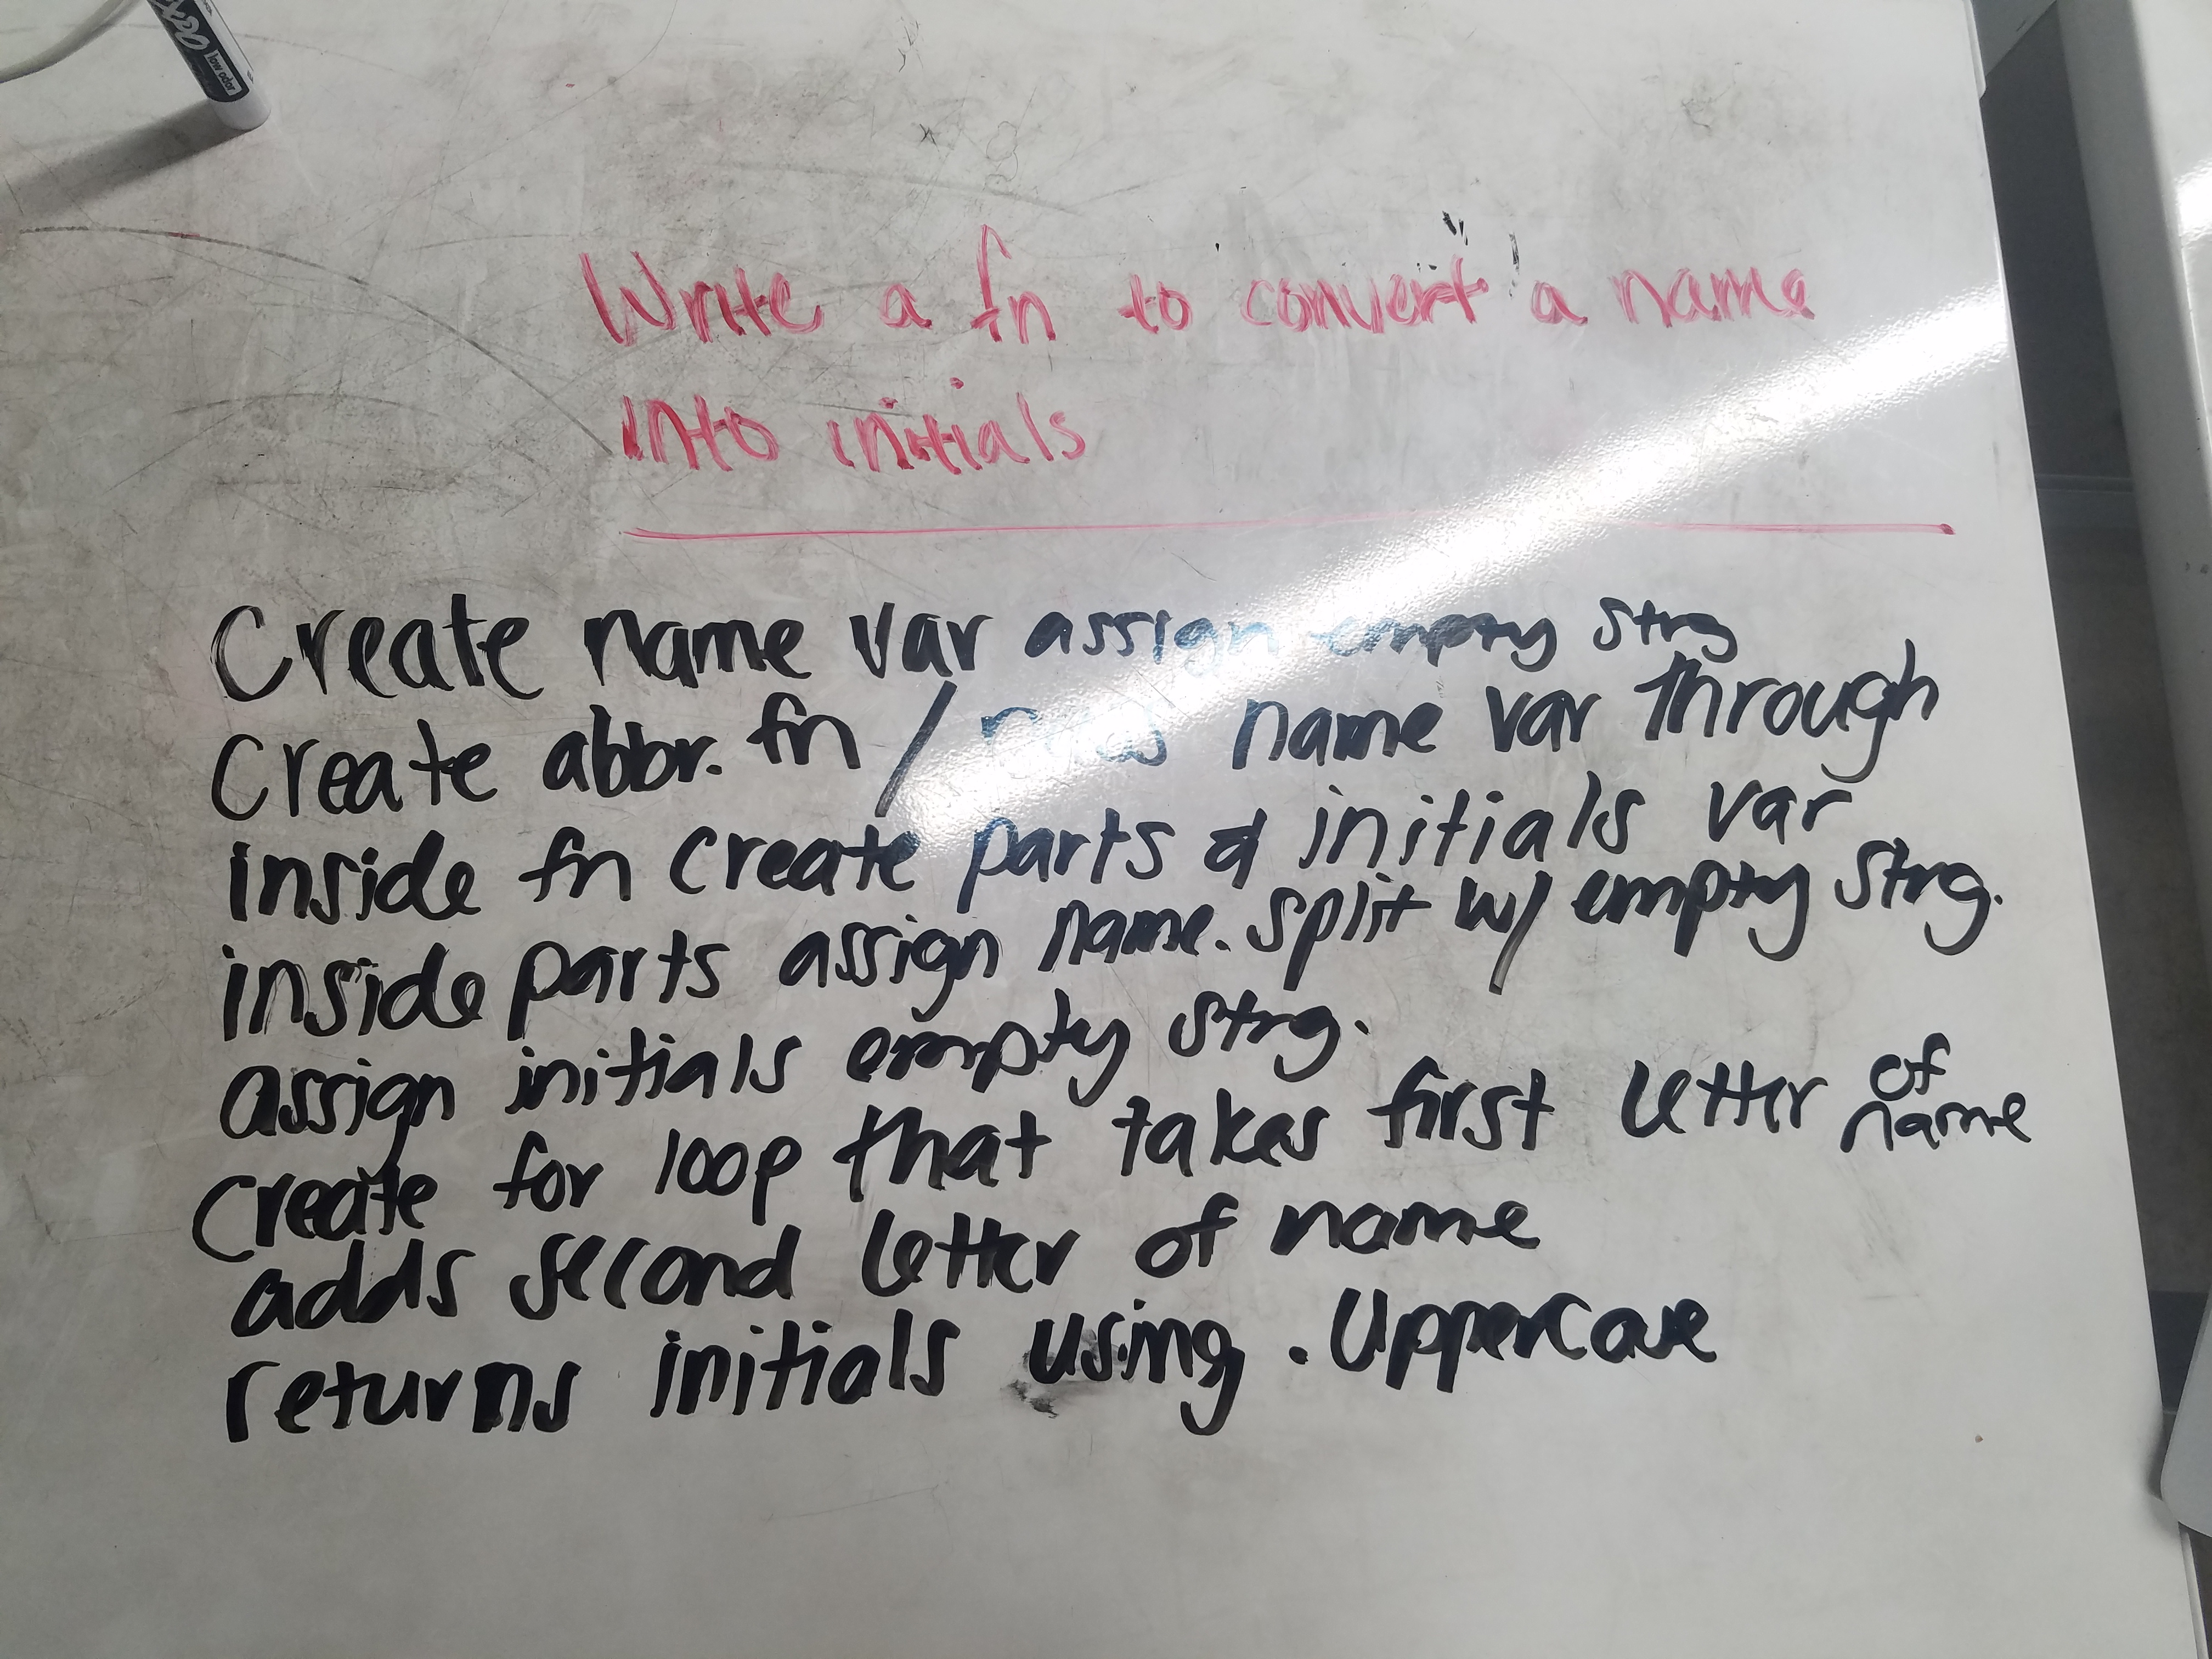 EXPO
low odor
Write a fn to convert a name
into initials
Create name var assign empty strg
Create abbr. fn / name var through
inside fn create parts & initials var
inside parts assign name.split w/ empty strg.
assign initials empty strg.
Create for loop that takes first letter of name
adds second letter of name
returns initials using .UpperCase